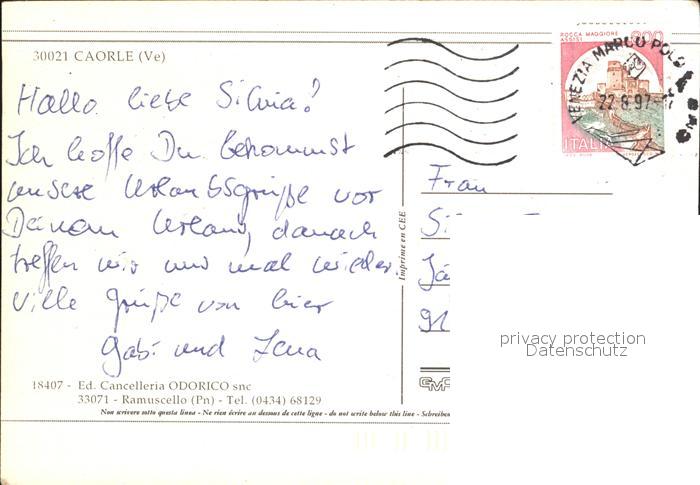 30021 CAORLE (Ve)
ROCCA MAGGIORE
ASSISI
800
VENEZIA MARCO POLO
22.8.97
ITALIA
Hallo liebe Silvia!
Ich hoffe Du bekommst
unsere Urlaubsgrüße vor
Deinem Urlaub, danach
treffen wir uns mal wieder.
Viele grüße von hier
Gabi und Jana
Frau
Si
Jä
91
Imprimé en CEE
privacy protection
Datenschutz
18407 - Ed. Cancelleria ODORICO snc
33071 - Ramuscello (Pn) - Tel. (0434) 68129
Non scrivere sotto questa linea - Ne rien écrire au dessous de cette ligne - do not write below this line - Schreiben